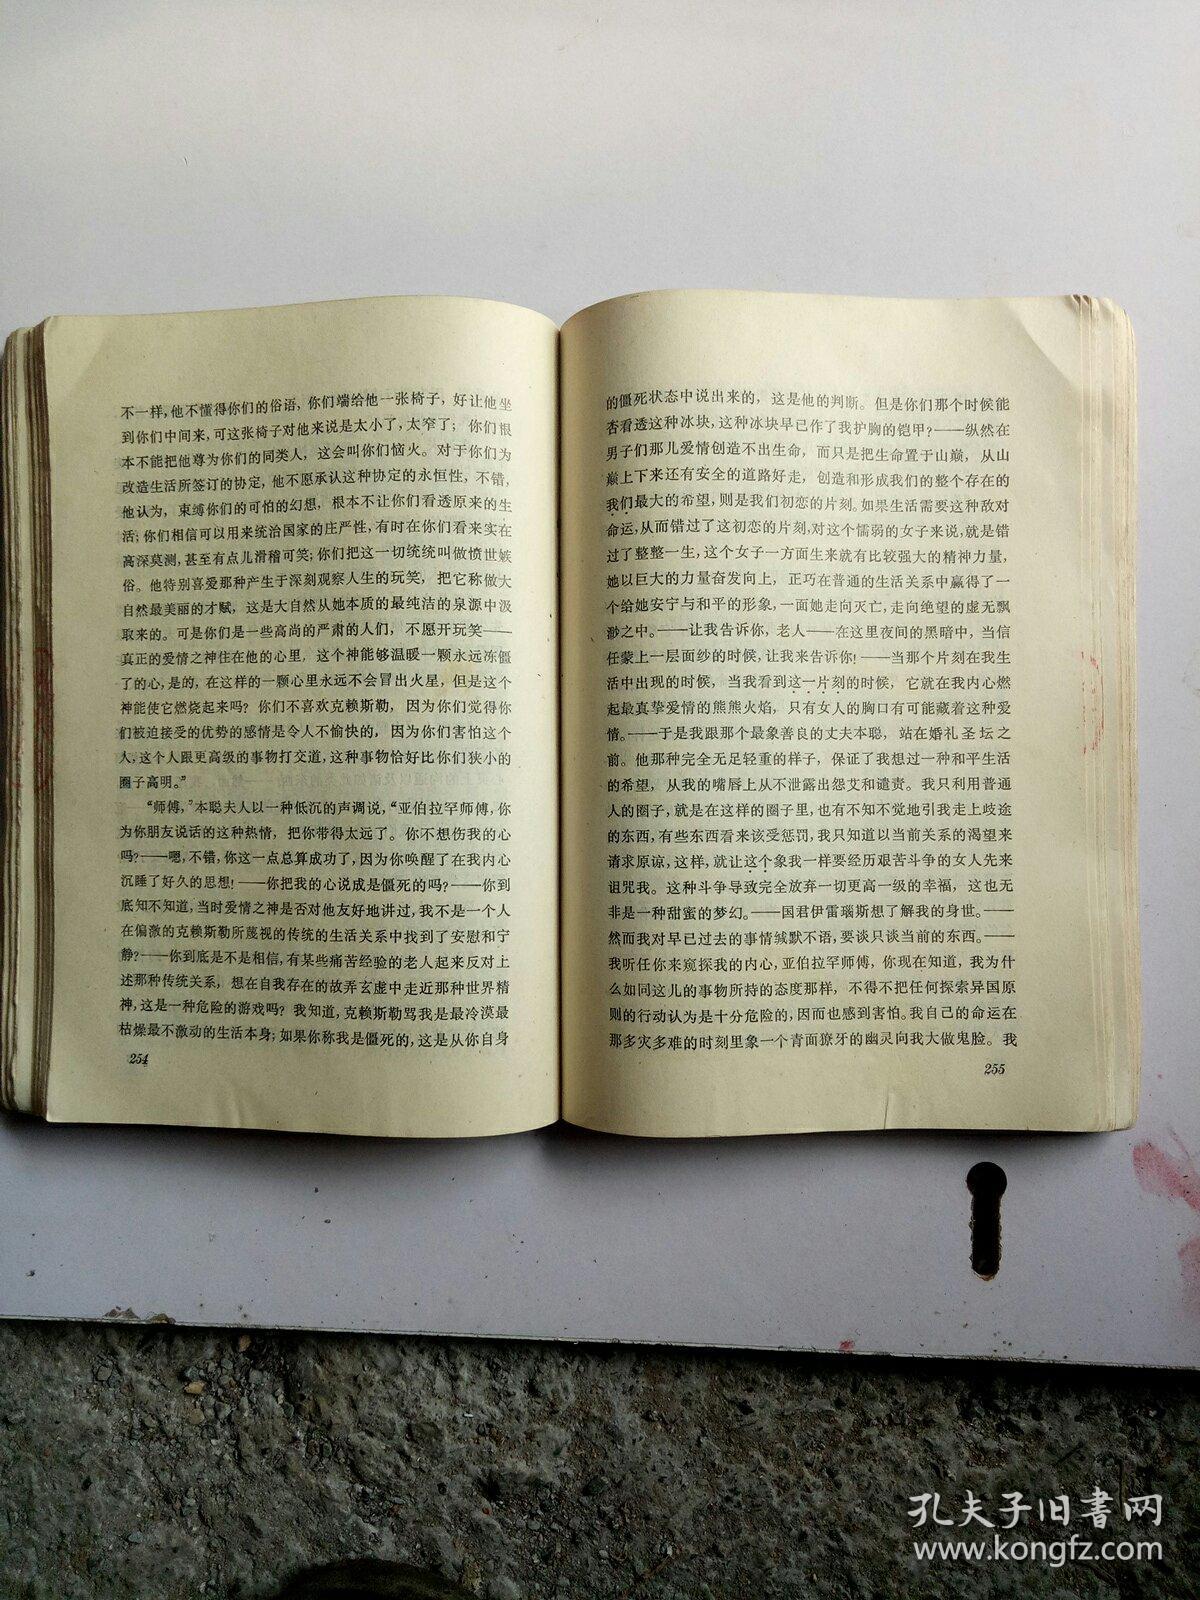 不一样,他不懂得你们的俗语,你们端给他一张椅子,好让他坐
到你们中间来,可这张椅子对他来说是太小了,太窄了;你们恨
本不能把他尊为你们的同类人,这会叫你们恼火。对于你们为
改造生活所签订的协定,他不愿承认这种协定的永恒性,不错,
他认为,束缚你们的可怕的幻想,根本不让你们看透原来的生
活;你们相信可以用来统治国家的庄严性,有时在你们看来实在
高深莫测,甚至有点儿滑稽可笑;你们把这一切统统叫做愤世嫉
俗。他特别喜爱那种产生于深刻观察人生的玩笑,把它称做大
自然最美丽的才赋,这是大自然从她本质的最纯洁的泉源中汲
取来的。可是你们是一些高尚的严肃的人们,不愿开玩笑——
真正的爱情之神住在他的心里,这个神能够温暖一颗永远冻僵
了的心,是的,在这样的一颗心里永远不会冒出火星,但是这个
神能使它燃烧起来吗?你们不喜欢克赖斯勒,因为你们觉得你
们被迫接受的优势的感情是令人不愉快的,因为你们害怕这个
人,这个人跟更高级的事物打交道,这种事物恰好比你们狭小的
圈子高明。”
“师傅,”本聪夫人以一种低沉的声调说,“亚伯拉罕师傅,你
为你朋友说话的这种热情,把你带得太远了。你不想伤我的心
吗?——嗯,不错,你这一点总算成功了,因为你唤醒了在我内心
沉睡了好久的思想!——你把我的心说成是僵死的吗?——你到
底知不知道,当时爱情之神是否对他友好地讲过,我不是一个人
在偏激的克赖斯勒所蔑视的传统的生活关系中找到了安慰和宁
静?——你到底是不是相信,有某些痛苦经验的老人起来反对上
述那种传统关系,想在自我存在的故弄玄虚中走近那种世界精
神,这是一种危险的游戏吗?我知道,克赖斯勒骂我是最冷漠最
枯燥最不激动的生活本身;如果你称我是僵死的,这是从你自身
254
的僵死状态中说出来的,这是他的判断。但是你们那个时候能
否看透这种冰块,这种冰块早已作了我护胸的铠甲?——纵然在
男子们那儿爱情创造不出生命,而只是把生命置于山巅,从山
巅上下来还有安全的道路好走,创造和形成我们的整个存在的
我们最大的希望,则是我们初恋的片刻。如果生活需要这种敌对
命运,从而错过了这初恋的片刻,对这个懦弱的女子来说,就是错
过了整整一生,这个女子一方面生来就有比较强大的精神力量,
她以巨大的力量奋发向上,正巧在普通的生活关系中赢得了一
个给她安宁与和平的形象,一面她走向灭亡,走向绝望的虚无飘
渺之中。——让我告诉你,老人——在这里夜间的黑暗中,当信
任蒙上一层面纱的时候,让我来告诉你!——当那个片刻在我生
活中出现的时候,当我看到这一片刻的时候,它就在我内心燃
起最真挚爱情的熊熊火焰,只有女人的胸口有可能藏着这种爱
情。——于是我跟那个最象善良的丈夫本聪,站在婚礼圣坛之
前。他那种完全无足轻重的样子,保证了我想过一种和平生活
的希望,从我的嘴唇上从不泄露出怨艾和谴责。我只利用普通
人的圈子,就是在这样的圈子里,也有不知不觉地引我走上歧途
的东西,有些东西看来该受惩罚,我只知道以当前关系的渴望来
请求原谅,这样,就让这个象我一样要经历艰苦斗争的女人先来
诅咒我。这种斗争导致完全放弃一切更高一级的幸福,这也无
非是一种甜蜜的梦幻。——国君伊雷瑙斯想了解我的身世。——
然而我对早已过去的事情缄默不语,要谈只谈当前的东西。——
我听任你来窥探我的内心,亚伯拉罕师傅,你现在知道,我为什
么如同这儿的事物所持的态度那样,不得不把任何探索异国原
则的行动认为是十分危险的,因而也感到害怕。我自己的命运在
那多灾多难的时刻里象一个青面獠牙的幽灵向我大做鬼脸。我
255
孔夫子旧書网
www.kongfz.com